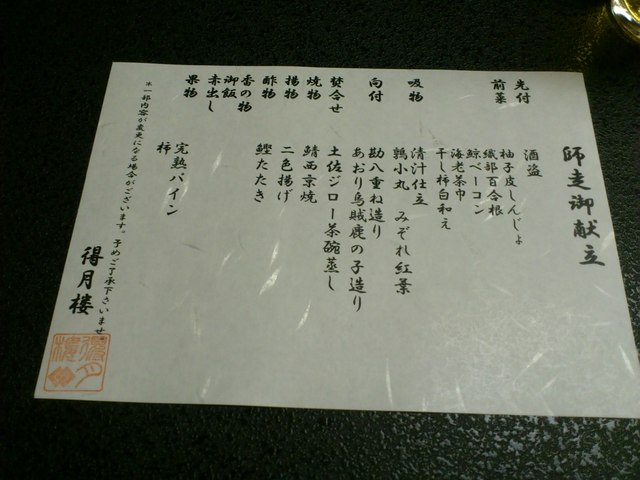 師走御献立
先付
酒盗
前菜
柚子皮しんじょ
織部百合根
鯨ベーコン
海老茶巾
干し柿白和え
吸物
清汁仕立
鶉小丸 みぞれ紅葉
向付
勘八重ね造り
あおり烏賊鹿の子造り
焚合せ
土佐ジロー茶碗蒸し
焼物
鯖西京焼
揚物
二色揚げ
酢物
鰹たたき
香の物
御飯
赤出し
果物
完熟パイン
柿
※一部内容が変更になる場合がございます。予めご了承下さいませ。
得月楼